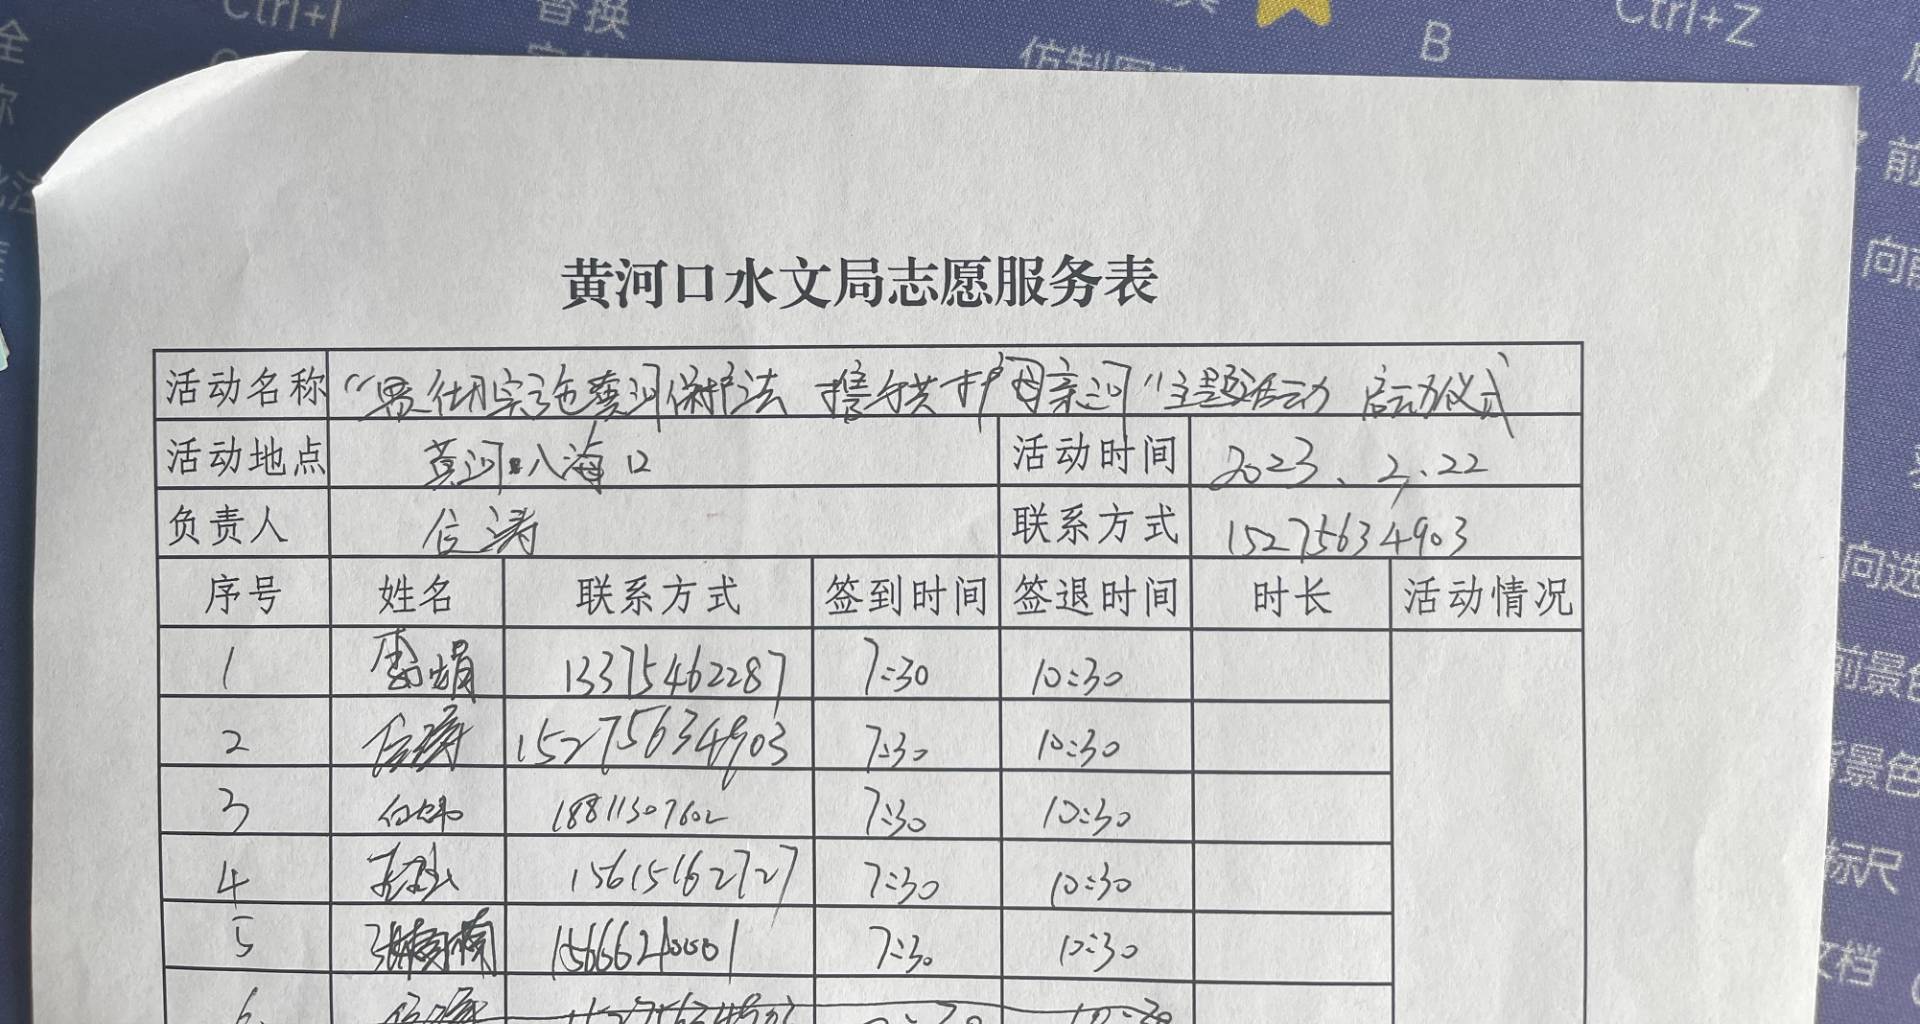 Ctrl+I
替换
B
Ctrl+Z
全
前
黄河口水文局志愿服务表
活动名称 “贯彻实施黄河保护法 携手共护母亲河”主题活动 启动仪式
活动地点 黄河入海口 活动时间 2023.2.22
负责人 信涛 联系方式 15275634903
序号 姓名 联系方式 签到时间 签退时间 时长 活动情况
1 13375462287 7:30 10:30
2 信涛 15275634903 7:30 10:30
3 18811307602 7:30 10:30
4 15615162727 7:30 10:30
5 张楠楠 15666210001 7:30 10:30
6
向选
前景色
背景色
标尺
文档